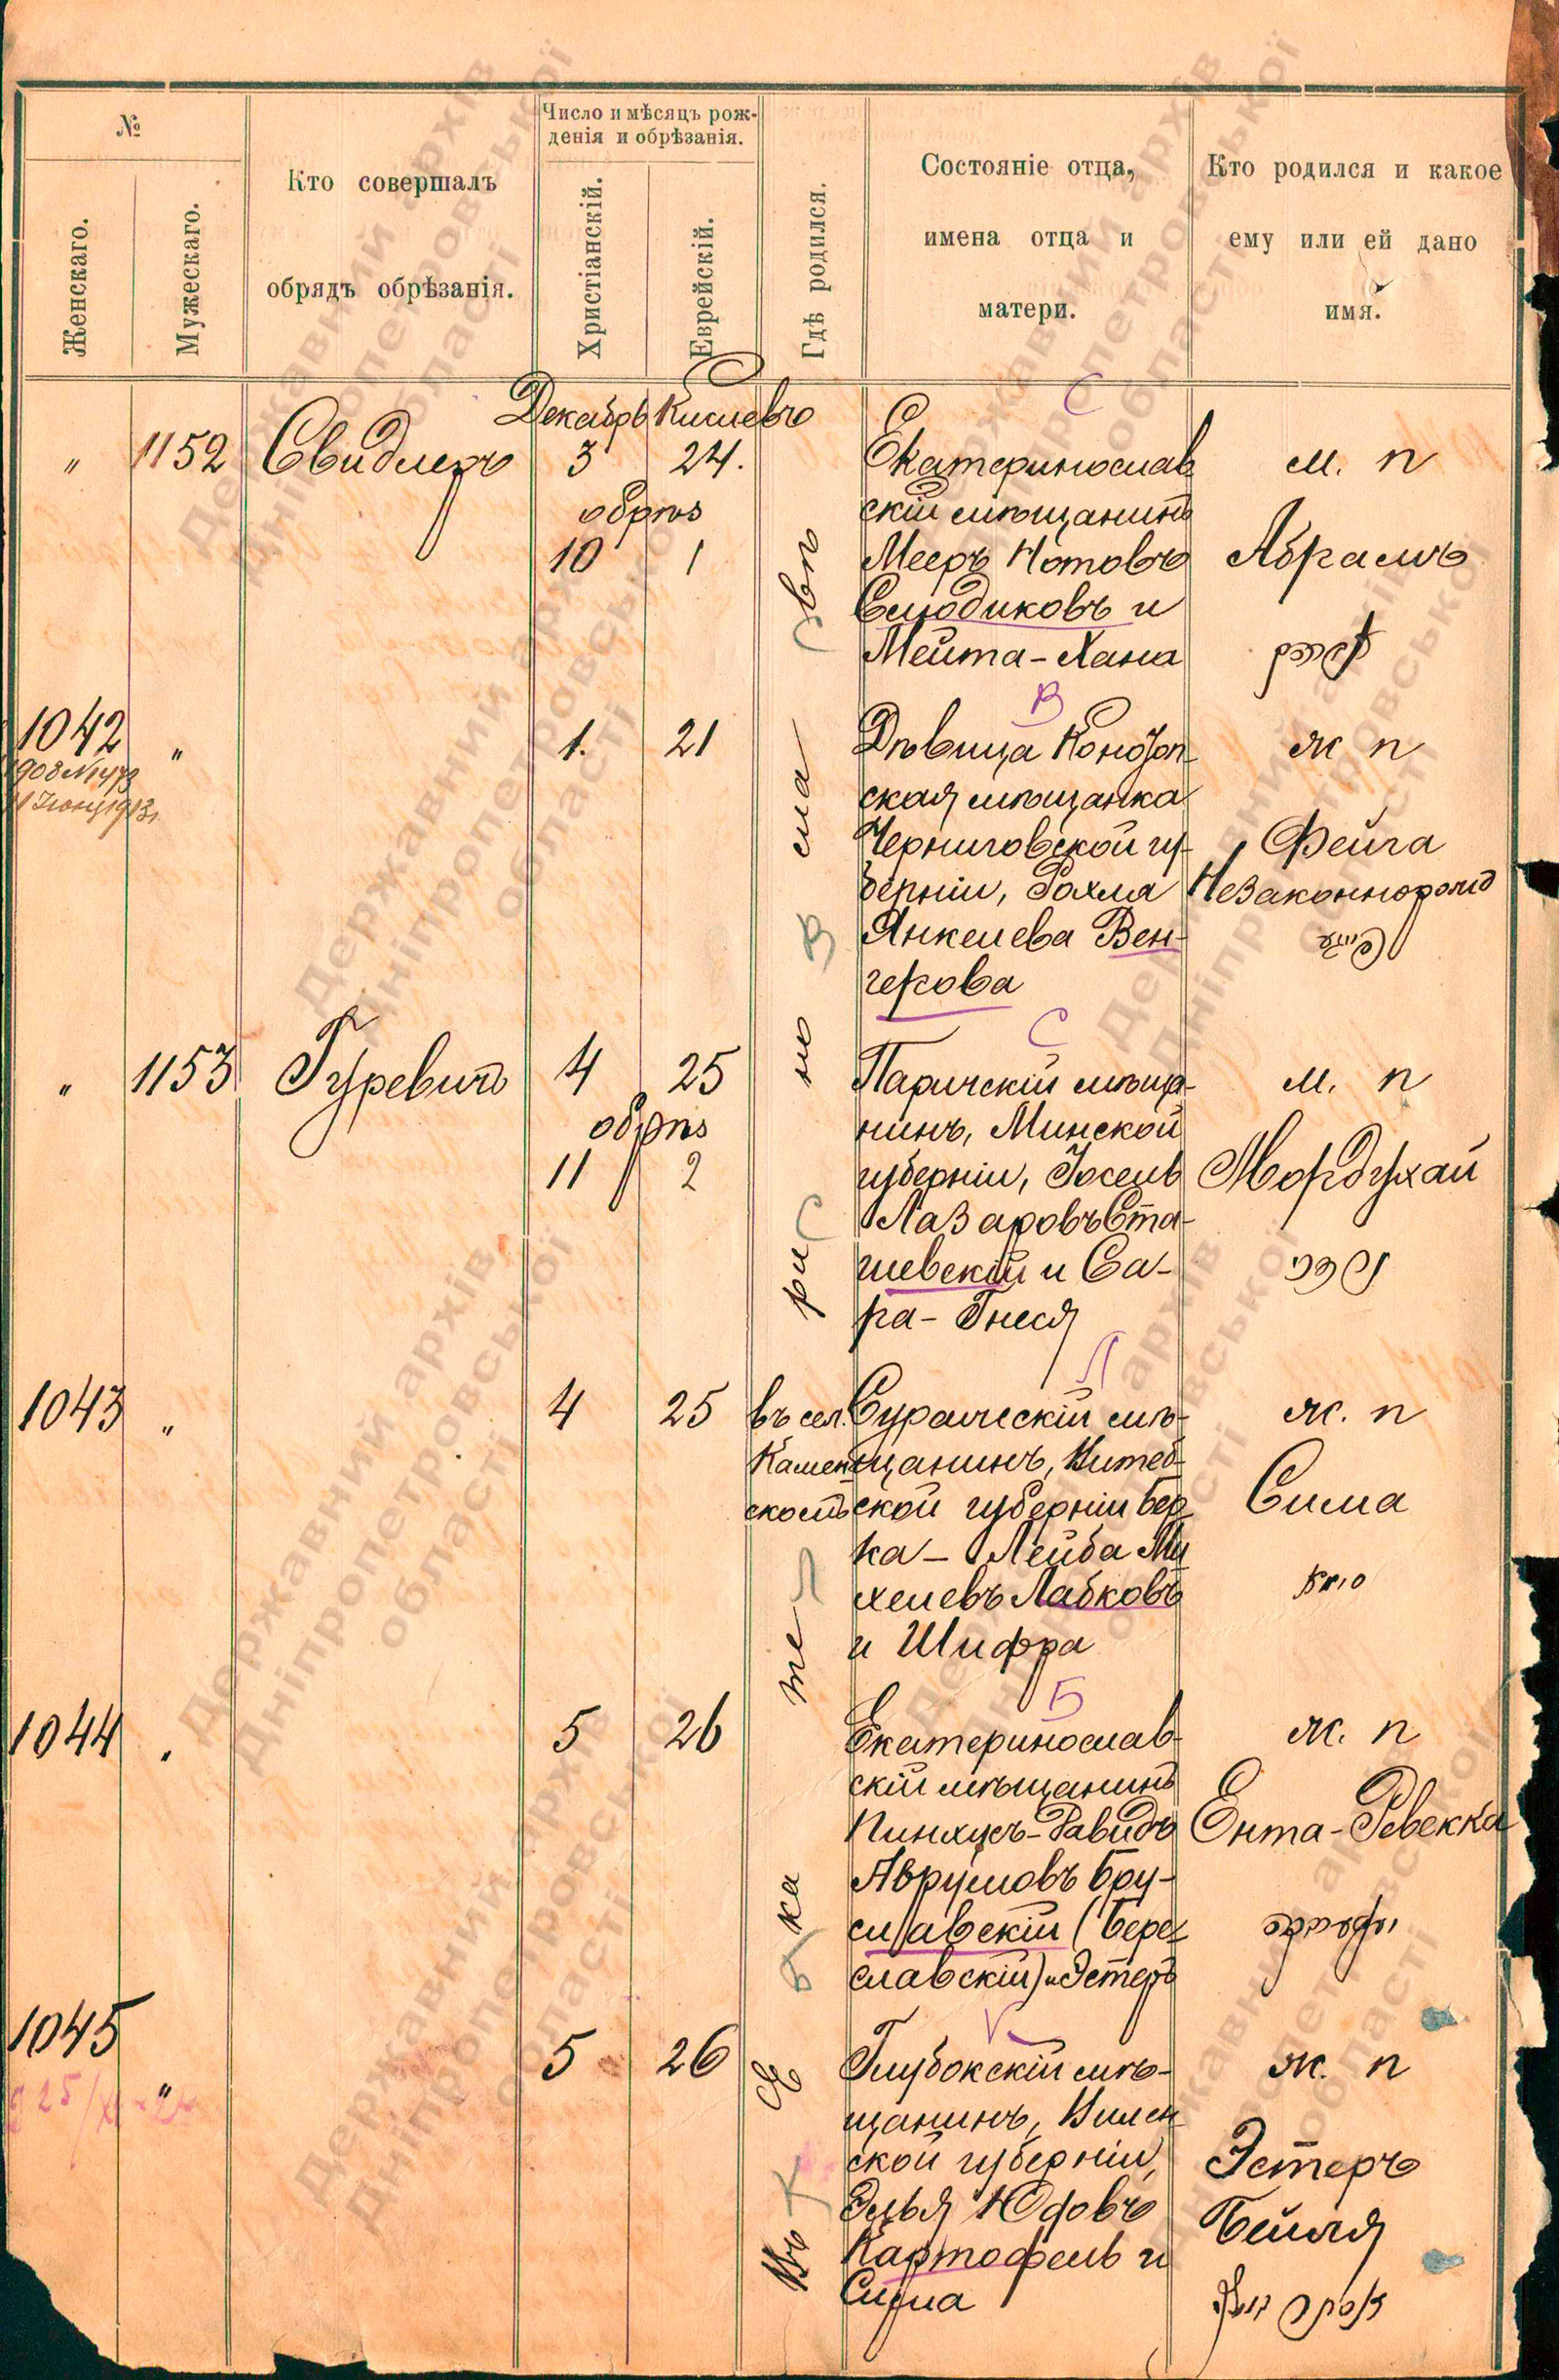 №
Женскаго.
Мужескаго.
Кто совершалъ
обрядъ обрѣзанія.
Число и мѣсяцъ рож-
денія и обрѣзанія.
Христіанскій.
Еврейскій.
Гдѣ родился.
Состояніе отца,
имена отца и
матери.
Кто родился и какое
ему или ей дано
имя.
Декабрь Кислевъ
" 1152 Свидлеръ 3 24.
обрѣз
10 1
Екатеринослав
скій мѣщанинъ
Мееръ Нотовъ
Слюдиковъ и
Мейта-Хана
С
м. п
Абрамъ
1042 "
1. 21
В
Дѣвица Конотоп-
ская мѣщанка
Черниговской гу-
берніи, Рохля
Янкелева Вен-
герова
ж п
Фейга
Незаконнорожд
" 1153 Гуревичъ 4 25
обрѣз
11 2
С
Паричскій мѣща-
нинъ, Минской
губерніи, Іосель
Лазаровъ Ста-
шевскій и Са-
ра-Гнеся
м. п
Мордухай
1043 " 4 25
въ сел.
Камен
скомъ
Л
Суражскій мѣ-
щанинъ, Витеб-
ской губерніи Бер
ка-Лейба Ми
хелевъ Лабковъ
и Шифра
ж. п
Сима
1044 5 26
Б
Екатеринослав-
скій мѣщанинъ
Пинхусъ-Давидъ
Аврумовъ Бру-
славскій (Бере-
славскій) и Эстеръ
ж. п
Ента-Ревекка
1045 " 5 26
Глубокскій мѣ-
щанинъ, Вилен
ской губерніи,
Элья Юдовъ
Картофель и
Сима
ж. п
Эстеръ
Бейля
Въ Екатеринославѣ
Державний архів
Дніпропетровської
області